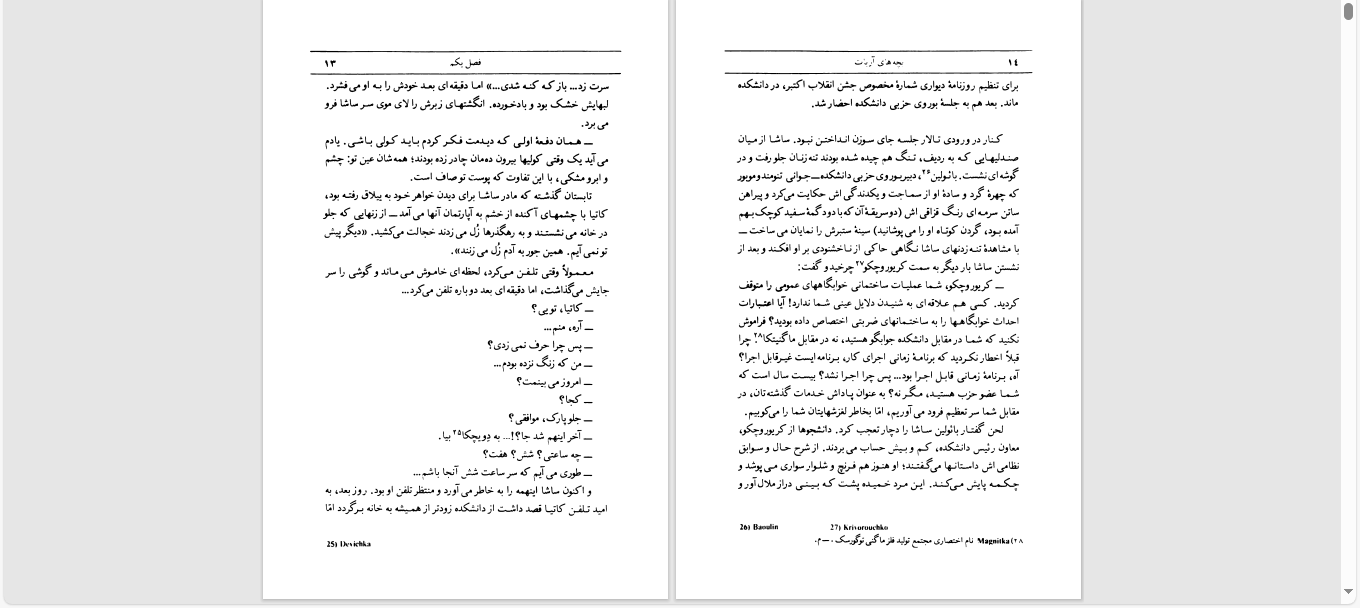 ۱۳ فصل یکم
سرت زد... باز که کنه شدی...» اما دقیقه‌ای بعد خودش را به او می‌فشرد.
لبهایش خشک بود و بادخورده. انگشتهای زبرش را لای موی سر ساشا فرو
می‌برد.
— همان دفعهٔ اولی که دیدمت فکر کردم باید کولی باشی. یادم
می‌آید یک وقتی کولیها بیرون ده‌مان چادر زده بودند؛ همه‌شان عین تو: چشم
و ابرو مشکی، با این تفاوت که پوست تو صاف است.
تابستان گذشته که مادر ساشا برای دیدن خواهر خود به ییلاق رفته بود،
کاتیا با چشمهای آکنده از خشم به آپارتمان آنها می‌آمد — از زنهایی که جلو
در خانه می‌نشستند و به رهگذرها زُل می‌زدند خجالت می‌کشید. «دیگر پیش
تو نمی‌آیم. همین جور به آدم زُل می‌زنند».
معمولاً وقتی تلفن می‌کرد، لحظه‌ای خاموش می‌ماند و گوشی را سر
جایش می‌گذاشت، اما دقیقه‌ای بعد دوباره تلفن می‌کرد...
— کاتیا، تویی؟
— آره، منم...
— پس چرا حرف نمی‌زدی؟
— من که زنگ نزده بودم...
— امروز می‌بینمت؟
— کجا؟
— جلو پارک، موافقی؟
— آخر اینهم شد جا؟!... به دِویچکا۲۵ بیا.
— چه ساعتی؟ شش؟ هفت؟
— طوری می‌آیم که سر ساعت شش آنجا باشم...
و اکنون ساشا اینهمه را به خاطر می‌آورد و منتظر تلفن او بود. روز بعد، به
امید تلفن کاتیا قصد داشت از دانشکده زودتر از همیشه به خانه برگردد امّا
25) Devichka
بچه‌های آربات ۱۴
برای تنظیم روزنامهٔ دیواری شمارهٔ مخصوص جشن انقلاب اکتبر، در دانشکده
ماند. بعد هم به جلسهٔ بوروی حزبی دانشکده احضار شد.
کنار در ورودی تالار جلسه جای سوزن انداختن نبود. ساشا از میان
صندلیهایی که به ردیف، تنگ هم چیده شده بودند تنه‌زنان جلو رفت و در
گوشه‌ای نشست. بائولین۲۶، دبیر بوروی حزبی دانشکده — جوانی تنومند و موبور
که چهرهٔ گرد و سادهٔ او از سماجت و یکدندگی‌اش حکایت می‌کرد و پیراهن
ساتن سرمه‌ای رنگ قزاقی‌اش (دوسر یقهٔ آن که با دو دگمهٔ سفید کوچک بهم
آمده بود، گردن کوتاه او را می‌پوشانید) سینهٔ ستبرش را نمایان می‌ساخت —
با مشاهدهٔ تنه زدنهای ساشا نگاهی حاکی از ناخشنودی بر او افکند و بعد از
نشستن ساشا بار دیگر به سمت کریوروچکو۲۷ چرخید و گفت:
— کریوروچکو، شما عملیات ساختمانی خوابگاههای عمومی را متوقف
کردید. کسی هم علاقه‌ای به شنیدن دلایل عینی شما ندارد! آیا اعتبارات
احداث خوابگاهها را به ساختمانهای ضربتی اختصاص داده بودید؟ فراموش
نکنید که شما در مقابل دانشکده جوابگو هستید، نه در مقابل ماگنیتکا۲۸. چرا
قبلاً اخطار نکردید که برنامهٔ زمانی اجرای کار، برنامه‌ایست غیرقابل اجرا؟
آه، برنامهٔ زمانی قابل اجرا بود... پس چرا اجرا نشد؟ بیست سال است که
شما عضو حزب هستید، مگر نه؟ به عنوان پاداش خدمات گذشته‌تان، در
مقابل شما سر تعظیم فرود می‌آوریم، امّا بخاطر لغزشهایتان شما را می‌کوبیم.
لحن گفتار بائولین ساشا را دچار تعجب کرد. دانشجوها از کریوروچکو،
معاون رئیس دانشکده، کم و بیش حساب می‌بردند. از شرح حال و سوابق
نظامی‌اش داستانها می‌گفتند؛ او هنوز هم فرنچ و شلوار سواری می‌پوشد و
چکمه پایش می‌کند. این مرد خمیده پشت که بینی دراز ملال‌آور و
26) Baoulin 27) Krivorouchko
۲۸) Magnitka نام اختصاری مجتمع تولید فلز ماگنی توگورسک. — م.